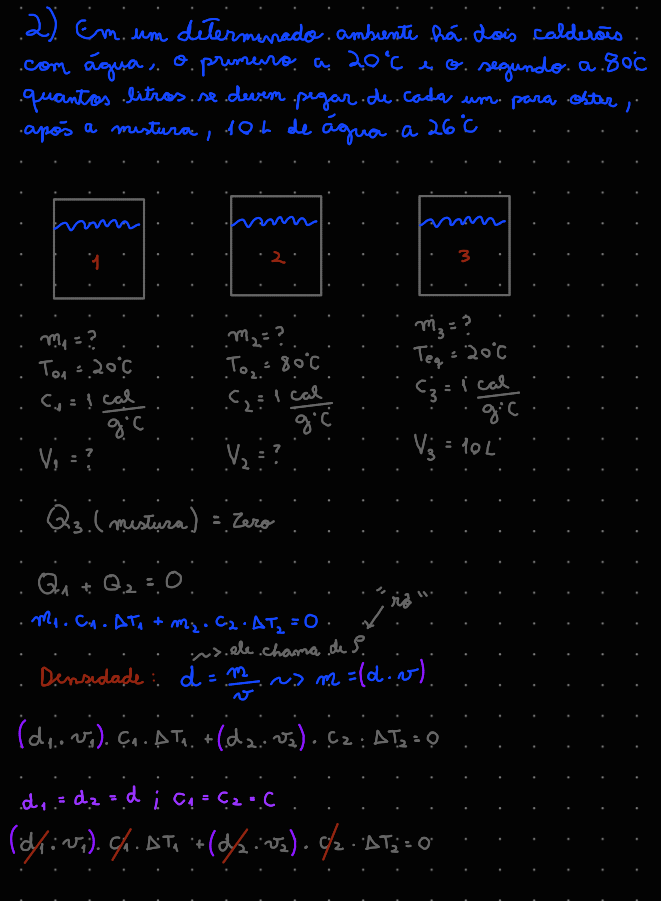 2) Em um determinado ambiente há dois calderões
com água, o primeiro a 20°C e o segundo a 80°C
quantos litros se devem pegar de cada um para obter,
após a mistura, 10L de água a 26°C
1
2
3
m₁ = ?
T₀₁ = 20°C
C₁ = 1 cal/g°C
V₁ = ?
m₂ = ?
T₀₂ = 80°C
C₂ = 1 cal/g°C
V₂ = ?
m₃ = ?
Teq = 20°C
C₃ = 1 cal/g°C
V₃ = 10L
Q₃ (mistura) = Zero
Q₁ + Q₂ = 0
"rô"
m₁ . C₁ . ΔT₁ + m₂ . C₂ . ΔT₂ = 0
~> ele chama de ρ
Densidade: d = m/v ~> m = (d . v)
(d₁ . v₁) . C₁ . ΔT₁ + (d₂ . v₂) . C₂ . ΔT₂ = 0
d₁ = d₂ = d ; C₁ = C₂ = C
(d₁ . v₁) . C₁ . ΔT₁ + (d₂ . v₂) . C₂ . ΔT₂ = 0